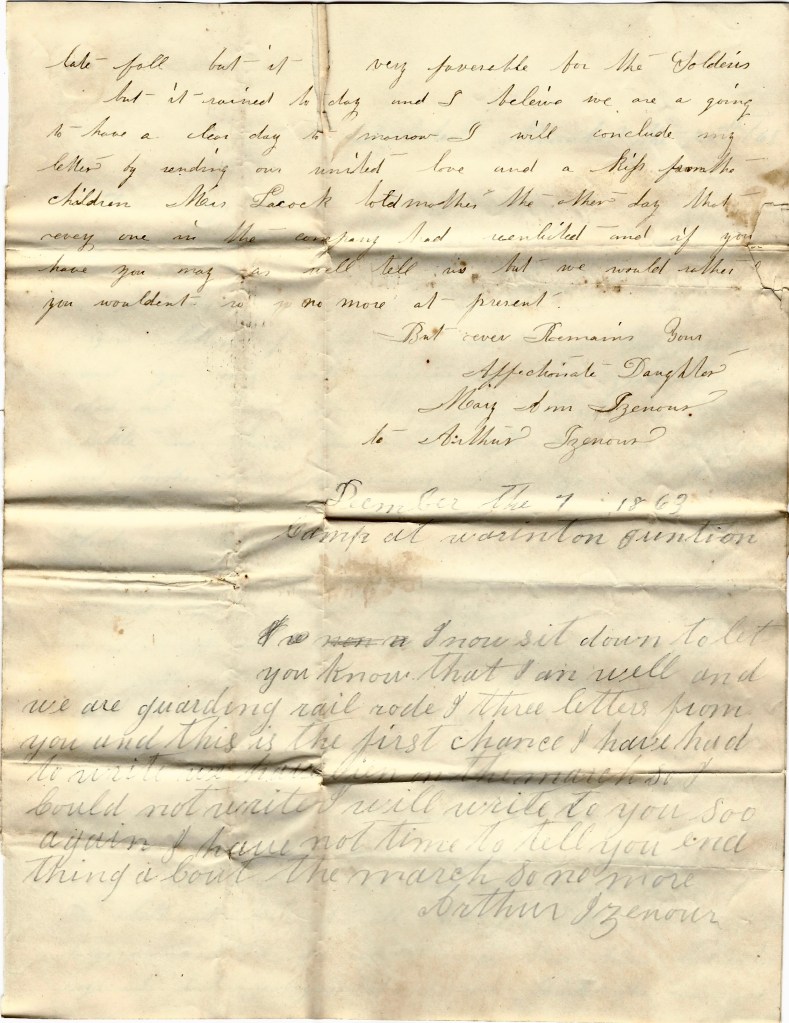 late fall but it very faverable for the Soldeirs
but it rained to day and I beleive we are a going
to have a clear day to morrow I will conclude my
letter by sending our united love and a kiss from the
children Mrs Lacock told mother the other day that
every one in the company had reenlisted and if you
have you may as well tell us but we would rather
you wouldent so no more at present
But ever Remains Your
Affectionate Daughter
Mary Ann Izenour
to Arthur Izenour
Dember the 7 1863
Camp at warinton guntion
I now sit down to let
you know that I am well and
we are guarding rail rode I three letters from
you and this is the first chance I have had
to write we have bien on the march so I
Could not write I will write to you soo
again I have not time to tell you end
thing a bout the march so no more
Arthur Izenour